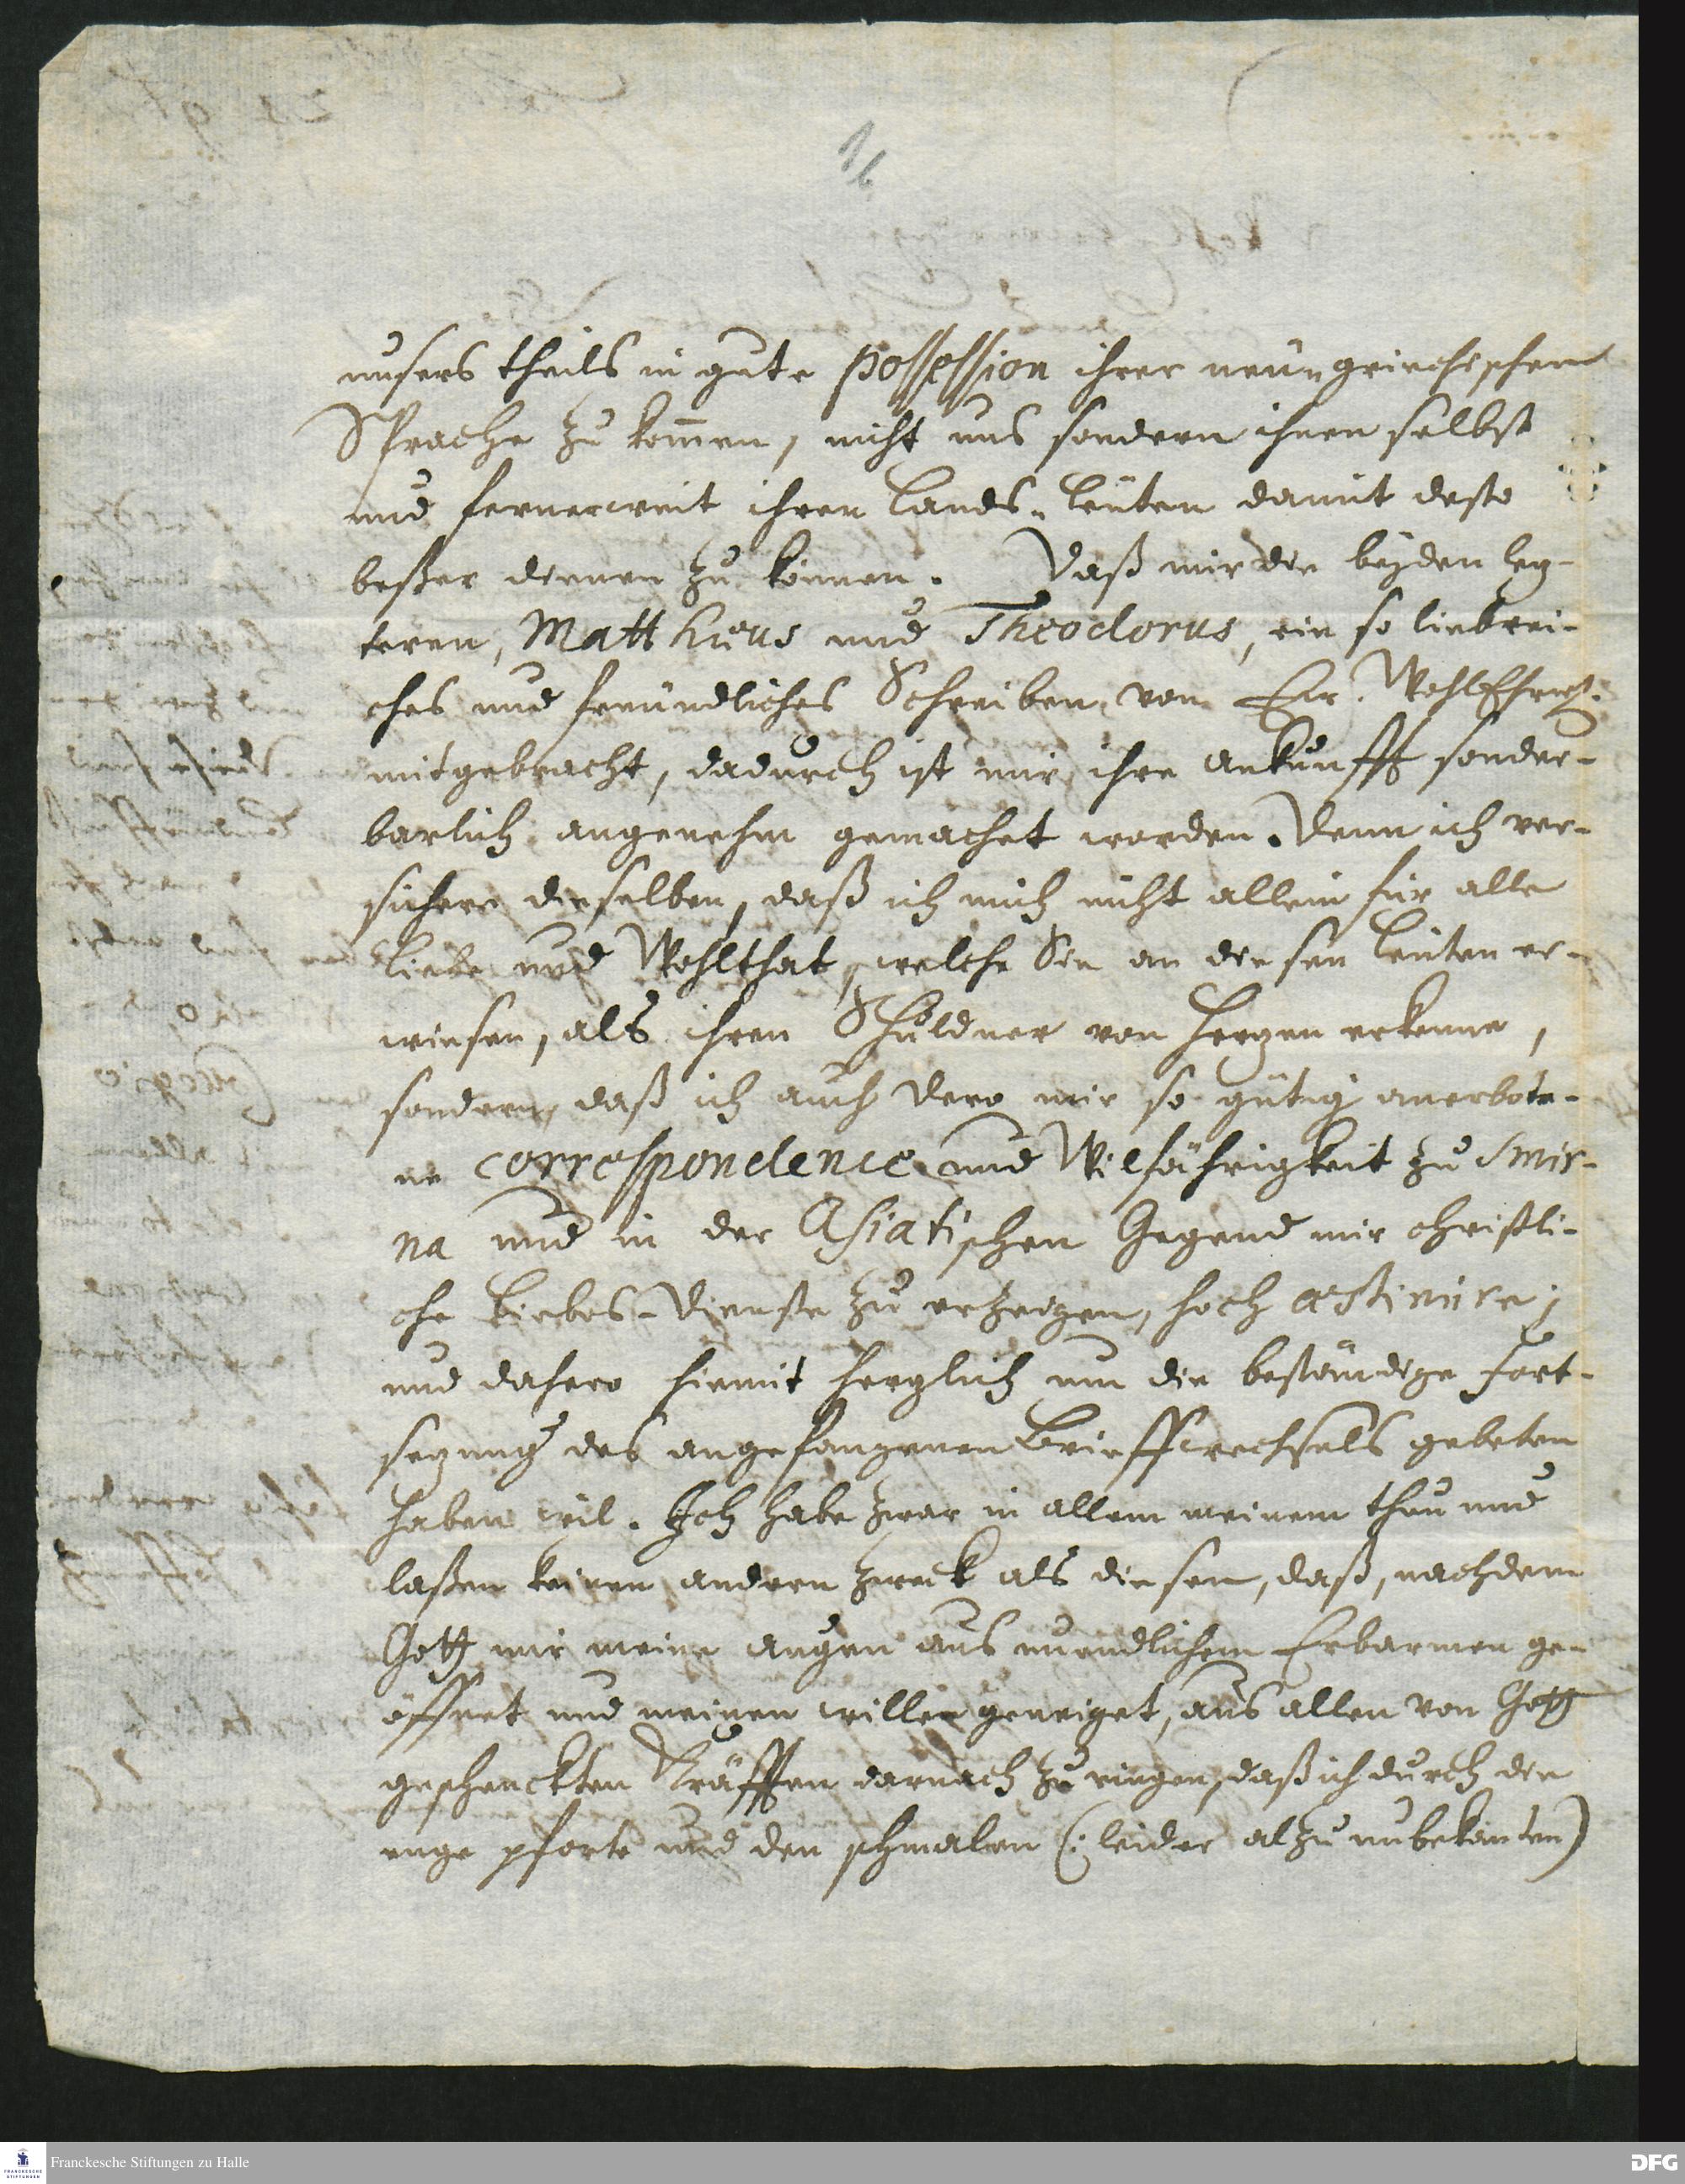 16
unsers theils in gute possession ihrer neu-griechischen
Sprache zu kom̅en, nicht uns sondern ihnen selbst
und fernerweit ihren Lands-Leuten damit desto
beßer dienen zu können. Daß mir die beyden letz-
teren, Matthæus und Theodorus, ein so liebrei-
ches und freundliches Schreiben von Ew. WohlEhrw.
mitgebracht, dadurch ist mir ihre ankunfft sonder-
barlich angenehm gemachet worden. Denn ich ver-
sichere dieselben, daß ich mich nicht allein für alle
Liebe und Wohlthat, welche Sie an diesen Leuten er-
wiesen, als ihren Schuldner von Hertzen erkenne,
sondern daß ich auch dero mir so gütig anerbote-
ne correspondence und Wilfährigkeit zu Smir-
na und in der Asiatischen Gegend mir christli-
che Liebes-Dienste zu erzeigen, hoch æstimire;
und dahero hiemit hertzlich um die beständige fort-
setzung des angefangenen Brieffwechsels gebeten
haben wil. Ich habe zwar in allem meinem thun und
laßen keinen andern zweck als diesen, daß, nachdem
Gott mir meine augen aus unendlichem Erbarmen ge-
öffnet und meinen willen geneiget, aus allen von Gott
geschenckten Kräfften darnach zu ringen, daß ich durch die
enge pforte und den schmalen (: leider alzu unbekanten)
Franckesche Stiftungen zu Halle
DFG